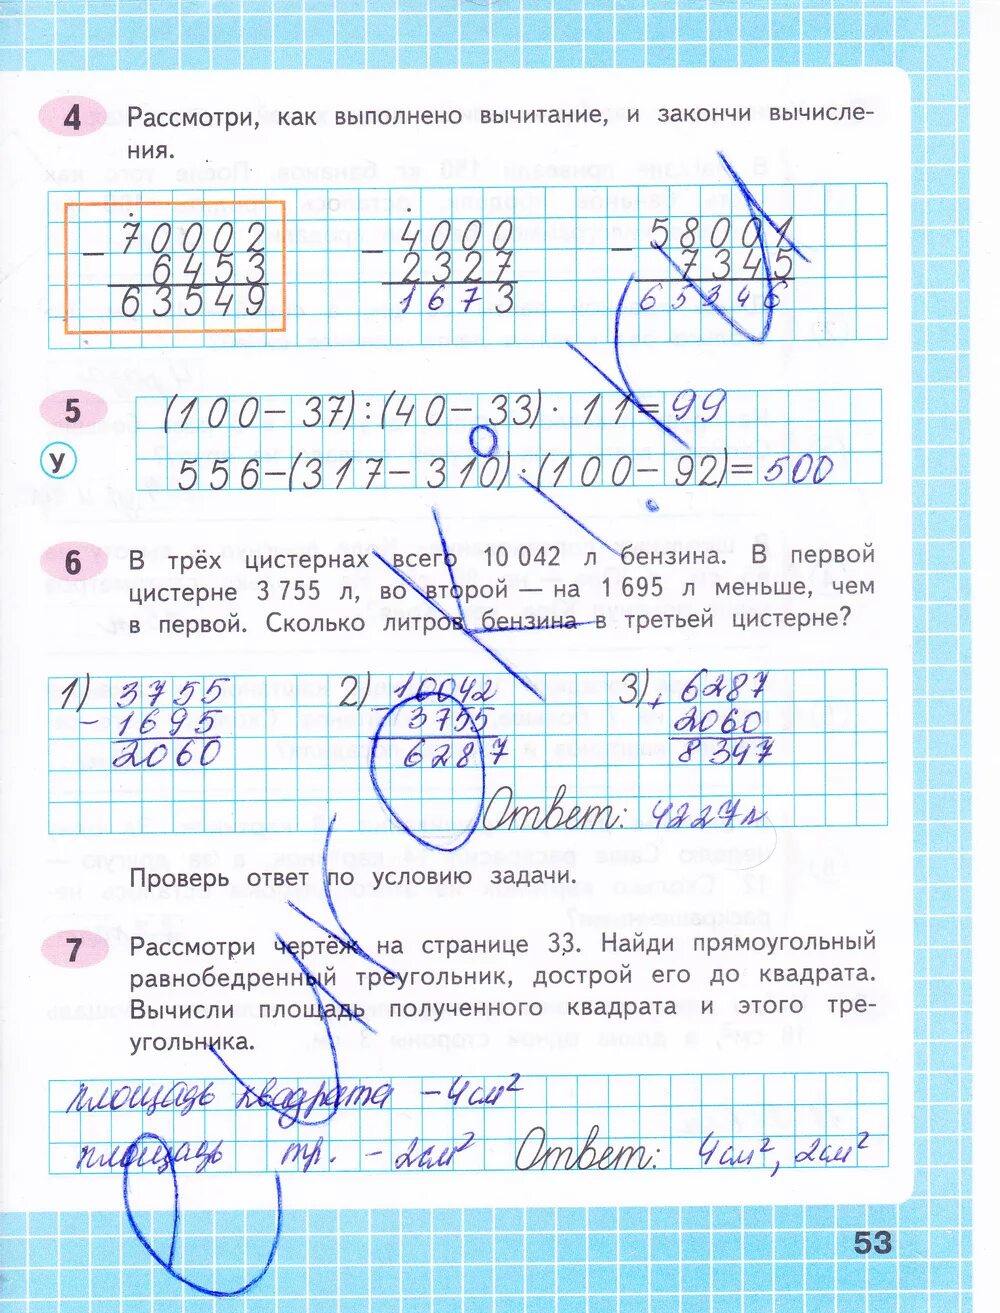 4 Рассмотри, как выполнено вычитание, и закончи вычисле-
ния.
70002 4000 58001
– 6453 – 2327 – 7345
63549 1673 65346
5 (100 – 37) : (40 – 33) · 11 = 99
У 556 – (317 – 310) : (100 – 92) = 500
6 В трёх цистернах всего 10 042 л бензина. В первой
цистерне 3 755 л, во второй — на 1 695 л меньше, чем
в первой. Сколько литров бензина в третьей цистерне?
1) 3755 2) 10042 3) 6287
– 1695 – 3755 + 2060
2060 6287 8347
Ответ: 4227л
Проверь ответ по условию задачи.
7 Рассмотри чертёж на странице 33. Найди прямоугольный
равнобедренный треугольник, дострой его до квадрата.
Вычисли площадь полученного квадрата и этого тре-
угольника.
площадь квадрата – 4см²
площадь тр. – 2см² Ответ: 4см², 2см²
53